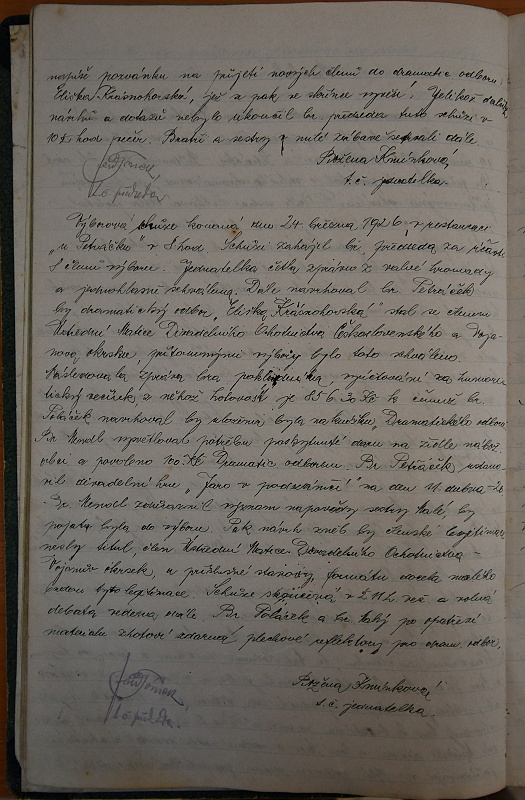 napíše pozvánku na přijetí nových členů do dramatic odboru
"Eliška Krásnohorská", jež a pak se schůze Jelikož dalších
návrhů a dotazů nebylo ukončil br. předseda tuto schůzi v
10¼ hod večer. Bratři a sestry v milé zábavě setrvali dále.
Božena Kmínková
t. č. jednatelka.
Výborová schůze konaná dne 24. března 1926 v restauraci
"u Petráčků" v 8 hod. Schůzi zahájil br. předseda za účasti
8 členů výboru. Jednatelka četla zprávu z valné hromady
a jednohlasně schválena. Dále navrhoval br. Petráček
by dramatický odbor "Eliška Krásnohorská" stal se členem
Ústřední Matice Divadelního Ochotnictva Československého a
okrsku, přítomnými výbory bylo toto schváleno.
Následovala zpráva bra pokladníka, vyúčtování za
večírek z něhož hotovost je 856 k čemuž br.
navrhoval by uložena byla na knížku Dramatického odboru
Br. Mendl vysvětloval potřebu poskytnutí daru na židle
obci a povoleno 100 Kč Dramatic odborem. Br. Petráček
divadelní hru "Jaro v podzámčí" na den 11. dubna
Br. Mendl význam nápovědy sestry by
pojata byla do výboru. Pak návrh by členské legitimace
nesly titul, člen Ústřední Matice Divadelního Ochotnictva
okrsek, a příslušné stanovy, formátu docela malého
budou tyto legitimace. Schůze skončena v hod več a volná
debata vedena dále. Br. a br. po opatření
materialu zhotoví zdarma plechové reflektory pro dram. odbor.
Božena Kmínková
t. č. jednatelka.